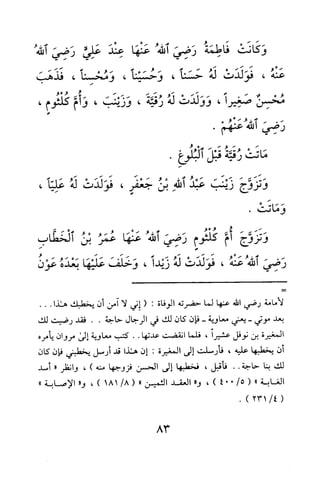 وَكَانَتْ فَاطِمَةُ رَضِيَ ٱللهُ عَنْهَا عِنْدَ عَلِيٍّ رَضِيَ ٱللهُ
عَنْهُ ، فَوَلَدَتْ لَهُ حَسَناً ، وَحُسَيْناً ، وَمُحْسِناً ، فَذَهَبَ
مُحْسِنٌ صَغِيراً ، وَوَلَدَتْ لَهُ رُقَيَّةَ ، وَزَيْنَبَ ، وَأُمَّ كُلْثُومٍ ،
رَضِيَ ٱللهُ عَنْهُمْ .
مَاتَتْ رُقَيَّةُ قَبْلَ ٱلْبُلُوغِ .
وَتَزَوَّجَ زَيْنَبَ عَبْدُ ٱللهِ بْنُ جَعْفَرٍ ، فَوَلَدَتْ لَهُ عَلِيّاً ،
وَمَاتَتْ .
وَتَزَوَّجَ أُمَّ كُلْثُومٍ رَضِيَ ٱللهُ عَنْهَا عُمَرُ بْنُ ٱلْخَطَّابِ
رَضِيَ ٱللهُ عَنْهُ ، فَوَلَدَتْ لَهُ زَيْداً ، وَخَلَفَ عَلَيْهَا بَعْدَهُ عَوْنُ
=
لأمامة رضي الله عنها لما حضرته الوفاة : ( إني لا آمن أن يخطبك هـٰذا . . .
بعد موتي ـ يعني معاوية ـ فإن كان لك في الرجال حاجة . . فقد رضيت لك
المغيرة بن نوفل عشيراً ، فلما انقضت عدتها . . كتب معاوية إلىٰ مروان يأمره
أن يخطبها عليه ، فأرسلت إلى المغيرة : إن هـٰذا قد أرسل يخطبني فإن كان
لك بنا حاجة . . فأقبل ، فخطبها إلى الحسن فزوجها منه ) ، وانظر « أسد
الغـابـة » ( ٥/ ٤٠٠ ) ، و« العقـد الثميـن » ( ٨/ ١٨١ ) ، و« الإصـابـة »
( ٤/ ٢٣١ ) .
٨٣